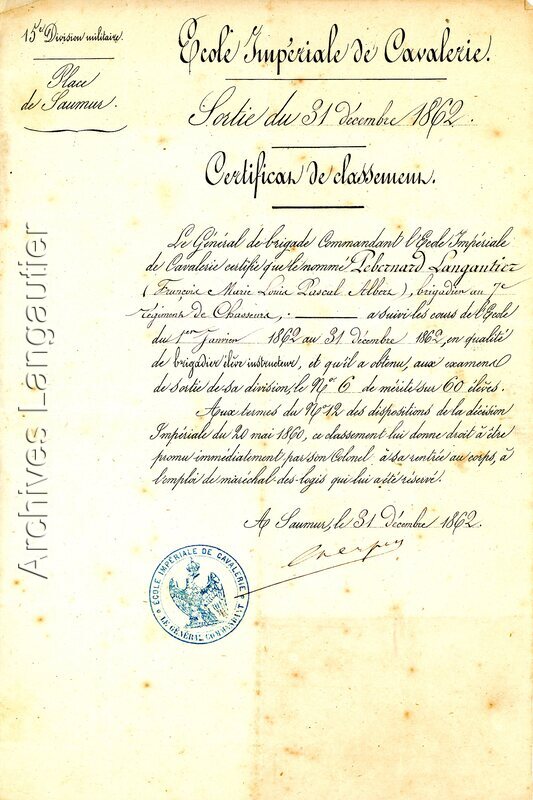 15e Division militaire.
Place
de Saumur.
Ecole Impériale de Cavalerie.
Sortie du 31 décembre 1862.
Certificat de classement.
Le Général de brigade Commandant l'Ecole Impériale
de Cavalerie certifie que le nommé Pebernard Langautier
(François Marie Louis Pascal Albert), brigadier au 7e
régiment de Chasseurs, a suivi les cours de l'Ecole
du 1er Janvier 1862 au 31 décembre 1862, en qualité
de brigadier élève instructeur, et qu'il a obtenu, aux examens
de sortie de sa division, le No 6 de mérite sur 60 élèves.
Aux termes du No 12 des dispositions de la décision
Impériale du 20 mai 1860, ce classement lui donne droit à être
promu immédiatement par son Colonel à sa rentrée au corps, à
l'emploi de maréchal des logis qui lui a été réservé.
A Saumur, le 31 Décembre 1862.
ÉCOLE IMPÉRIALE DE CAVALERIE
LE GÉNÉRAL COMMANDANT
Archives Langautier